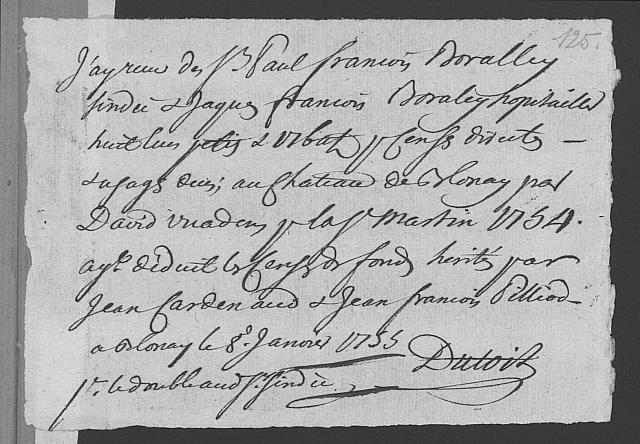 125.
J'ay receu des Srs Paul francois Boralley
sindic & Jaques francois Boraley hopitailler
huit livres & bats pr Censes deduites
& usages deus; au Chateau de Blonay par
David pr la St Martin 1754.
ayt deduit les Censes des fonds herités par
Jean Cardenaud & Jean francois Pilliod
a Blonay le 8e. Janvier 1755
Dutoit
pr. le double aud Sr Sindic.